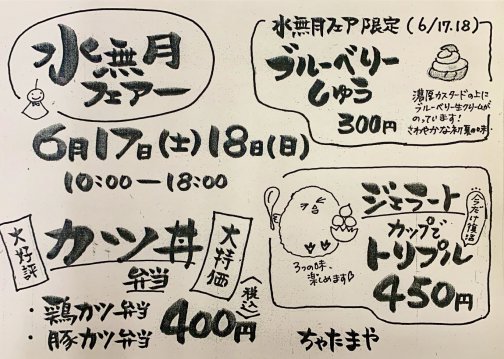 水無月
フェアー
6月17日(土)18日(日)
10:00－18:00
水無月フェア限定(6/17.18)
ブルーベリー
しゅう
300円
濃厚カスタードの上に
ブルーベリー生クリームが
のっています！
さわやかな初夏の味
大好評
カツ丼
弁当
大特価
・鶏カツ弁当
・豚カツ弁当
400円
(税込)
ジェラート
今だけ復活
カップで
トリプル
450円
3つの味、
楽しめます
ちゃたまや